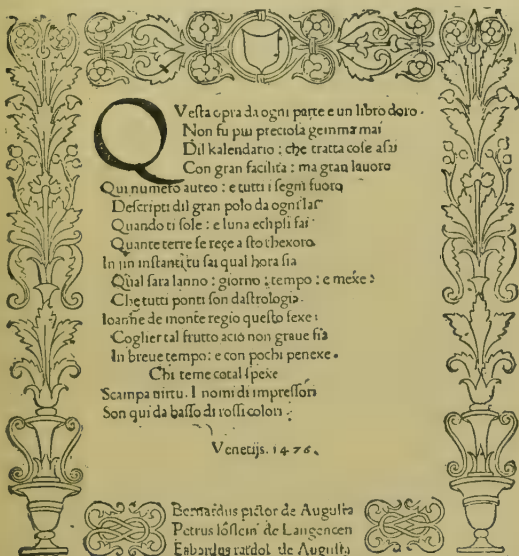 QVesta opra da ogni parte e un libro doro.
Non fu piu preciosa gemma mai
Dil kalendario: che tratta cose asai
Con gran facilita: ma gran lauoro
Qui numero aureo: e tutti i segni fuoro
Descripti dil gran polo da ogni lai
Quando ti sole: e luna echpsi fai
Quante terre se reçe a sto thexoro
In un instanti tu sai qual hora sia
Qual sara lanno: giorno: tempo: e mexe:
Che tutti ponti son dastrologia.
Ioanne de monte regio questo fexe:
Coglier tal frutto acio non graue sia
In breue tempo: e con pochi penexe.
Chi teme cotal spexe
Scampa uirtu. I nomi di impressori
Son qui da basso di rossi colori.
Venetijs. 1476.
Bernardus pictor de Augusta
Petrus löslein de Langencen
Erhardus ratdolt de Augusta